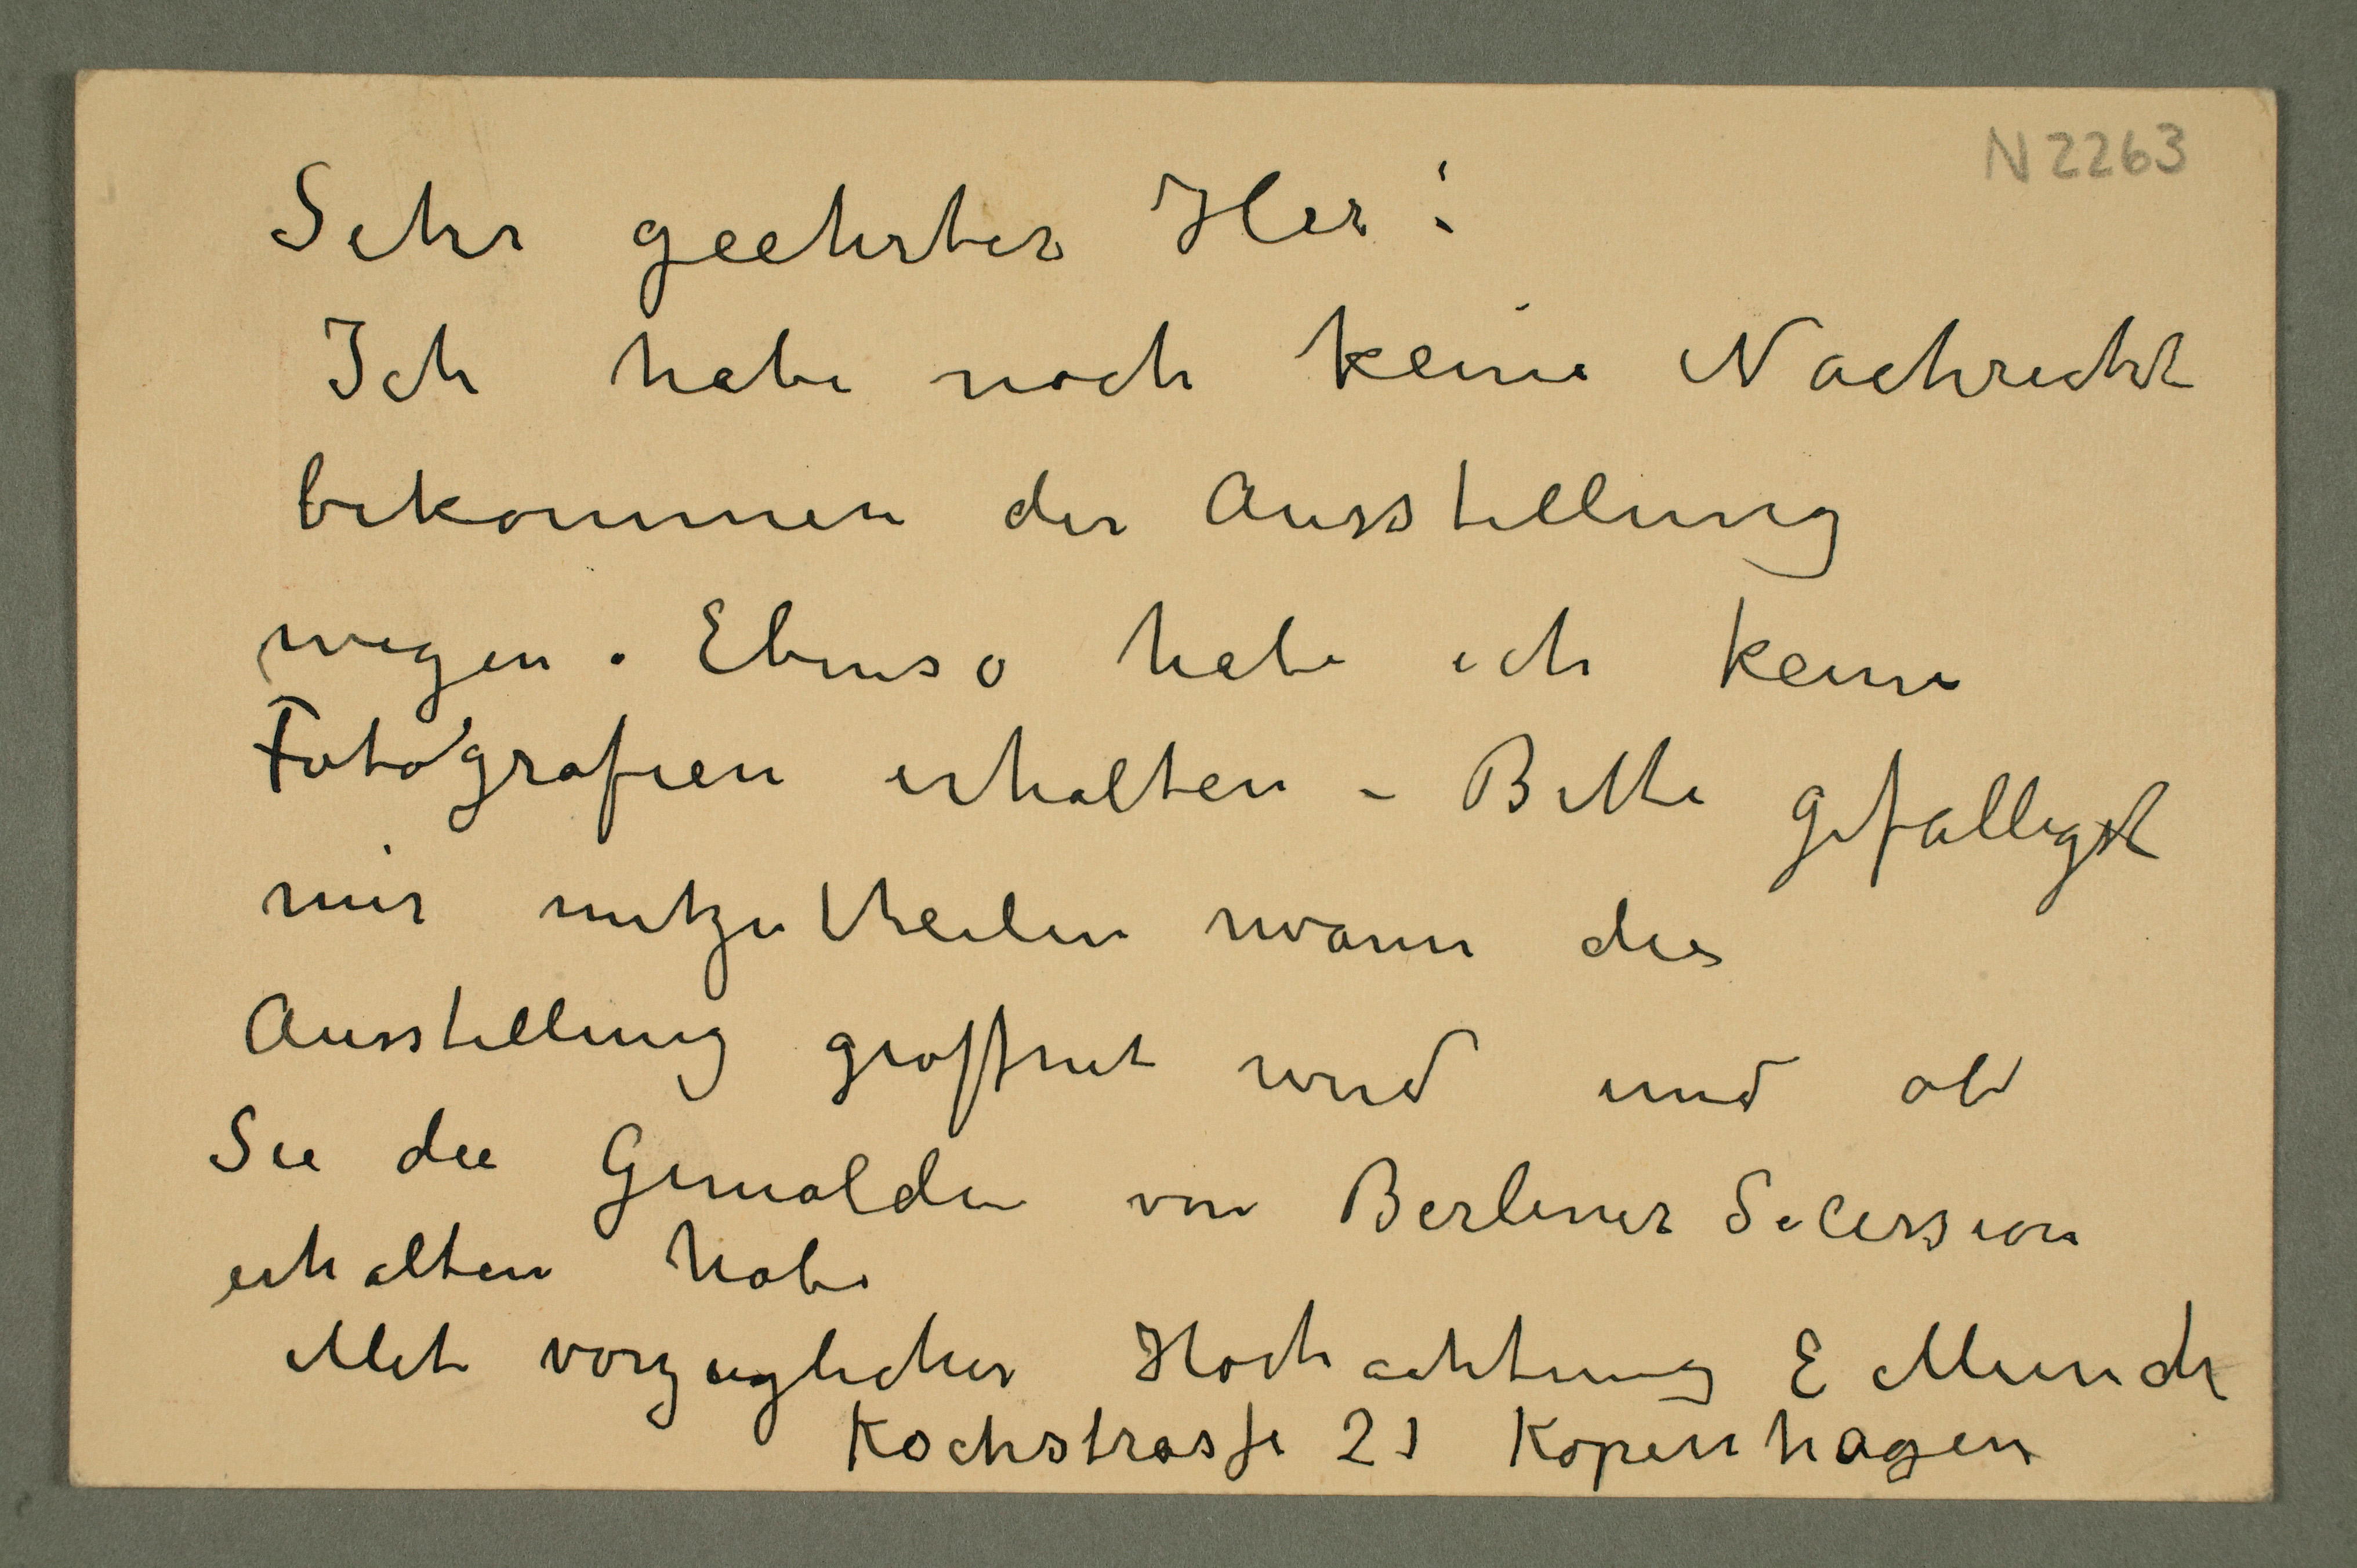 N 2263
Sehr geehrter Her!
Ich habe noch keine Nachricht
bekommen der Ausstellung
wegen. Ebenso habe ich keine
Fotografien erhalten – Bitte gefalligst
mir mitzutheilen wann die
Ausstellung geoffnet wird und ob
Sie die Gemalden von Berliner Secession
erhalten habe
Mit vorzuglicher Hochachtung E Munch
Kochstrasse 21 Kopenhagen